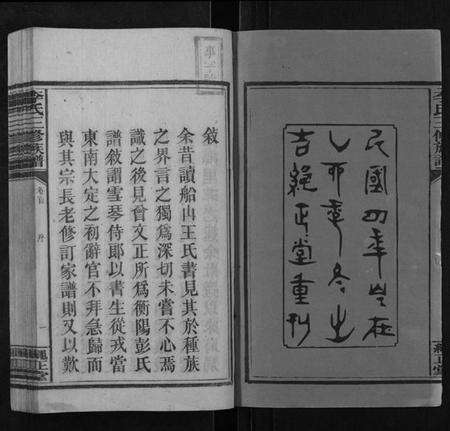 民國四年岁在
乙卯季冬之
吉繩正堂重刊
敘
余昔讀船山王氏書見其於種族
之界言之獨爲深切未嘗不心焉
識之後見曾文正所爲衡陽彭氏
譜敘謂雪琴侍郎以書生從戎當
東南大定之初辭官不拜急歸而
與其宗長老修訂家譜則又以歎
李氏三修族譜
卷首
一
繩正堂